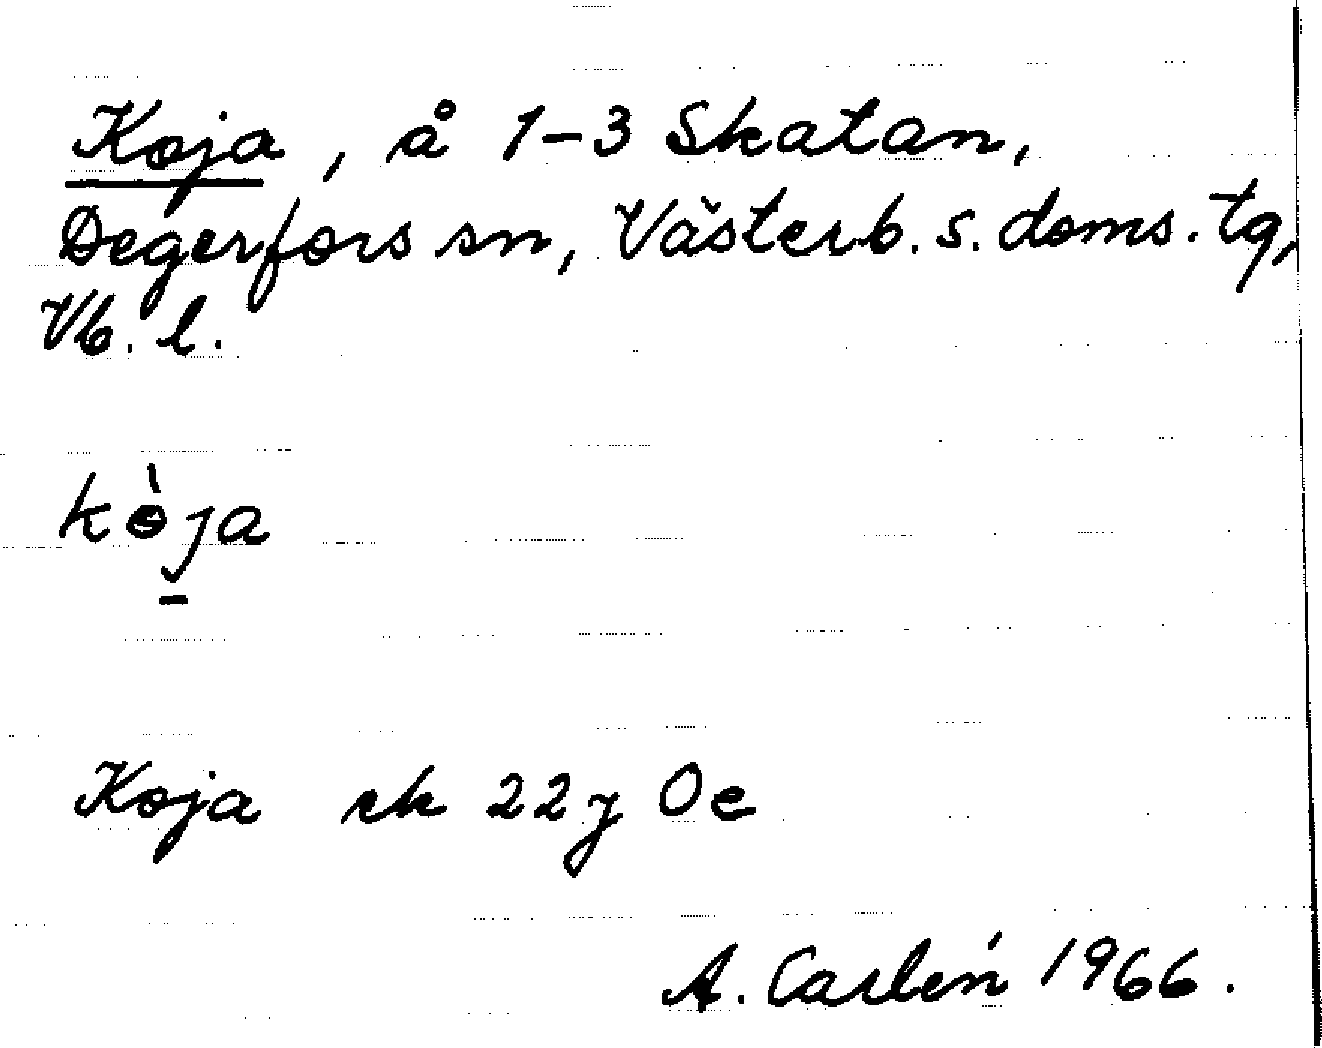 Koja, å 1-3 Skatan,
Degerfors sn, Västerb. s. doms. tg,
Vb. l.
kòja
Koja rk 22 J Oe
A. Carlén 1966.